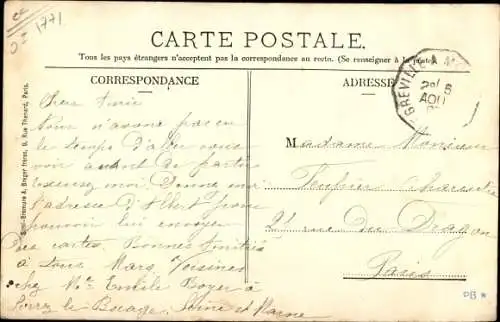 1771
CARTE POSTALE.
Tous les pays étrangers n'acceptent pas la correspondance au recto. (Se renseigner à la poste)
CORRESPONDANCE
ADRESSE
GREVILLE A
2e/ 5
AOU
Nous n'avons pas eu
le temps d'aller vous
voir avant de partir
excusez moi. Donne moi
l'adresse d'Albert pour
pouvoir lui envoyer
des cartes. Bonnes Amitiés
à tous Marg. Voisines
chez Me Emile Boyer à
le Bocage. Seine et Marne
Madame Monsieur
Charentier
21 rue du Dragon
Paris
A. Breger Frères, 9, Rue Thénard, Paris.
PB *